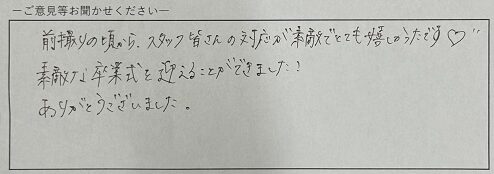 ーご意見等お聞かせくださいー
前撮りの頃から、スタッフ皆さんの対応が素敵でとても嬉しかったです♡"
素敵な卒業式を迎えることができました!
ありがとうございました。